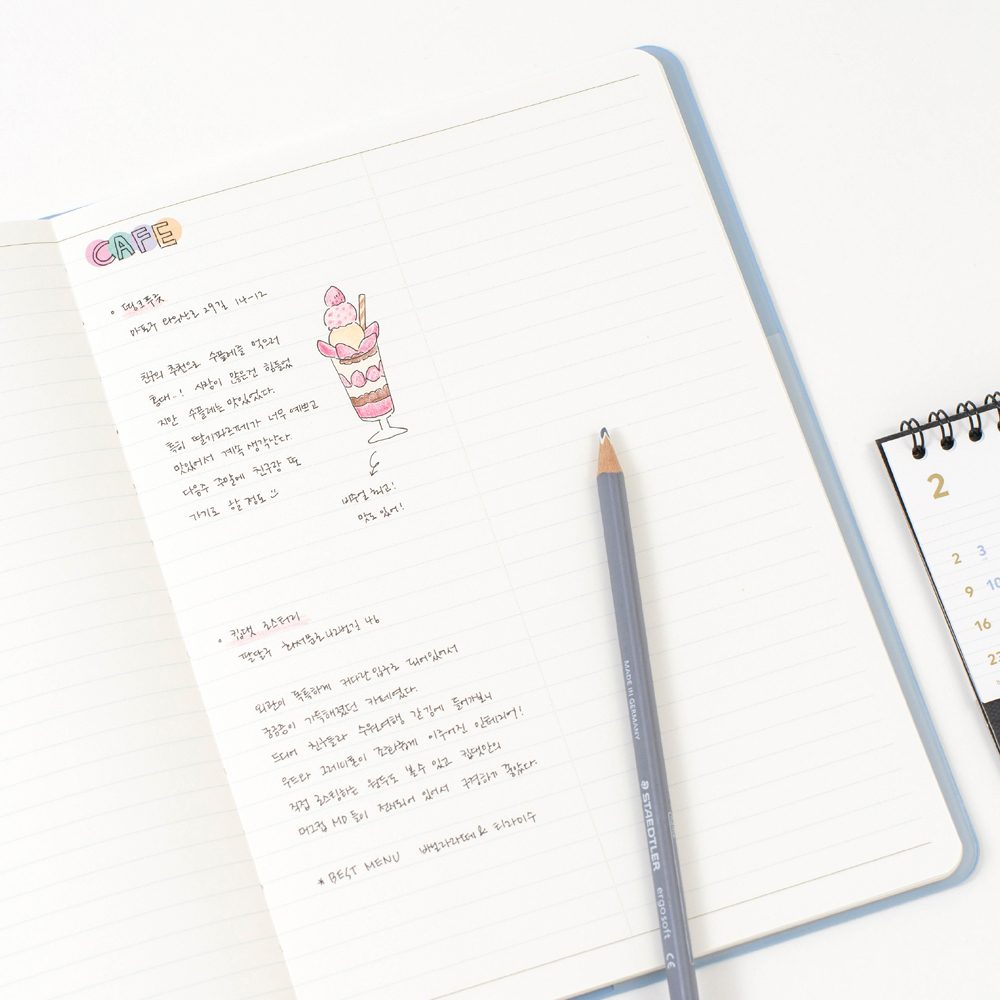 CAFE
마포구 와우산로 29길 14-12
친구의 추천으로 수플레를 먹으러
홍대..! 사람이 많은건 힘들었
지만 수플레는 맛있었다.
특히 딸기파르페가 너무 예쁘고
맛있어서 계속 생각난다.
다음주 주말에 친구랑 또
가기로 할 정도
비주얼 최고!
맛도 있어!
킵댓 로스터리
팔달구 화서문로42번길 46
외관이 독특하게 커다란 입구로 되어있어서
궁금증이 가득해졌던 카페였다.
드디어 친구들과 수원여행 간김에 들어가보니
우드와 그레이톤이 조화롭게 이루어진 인테리어!
직접 로스팅하는 원두도 볼수 있고 킵댓만의
머그컵 MD들이 전시되어 있어서 구경하기 좋았다.
* BEST MENU 바닐라라떼 & 티라미수
MADE IN GERMANY
STAEDTLER
ergosoft
CE
2
2 3
9 10
16
23